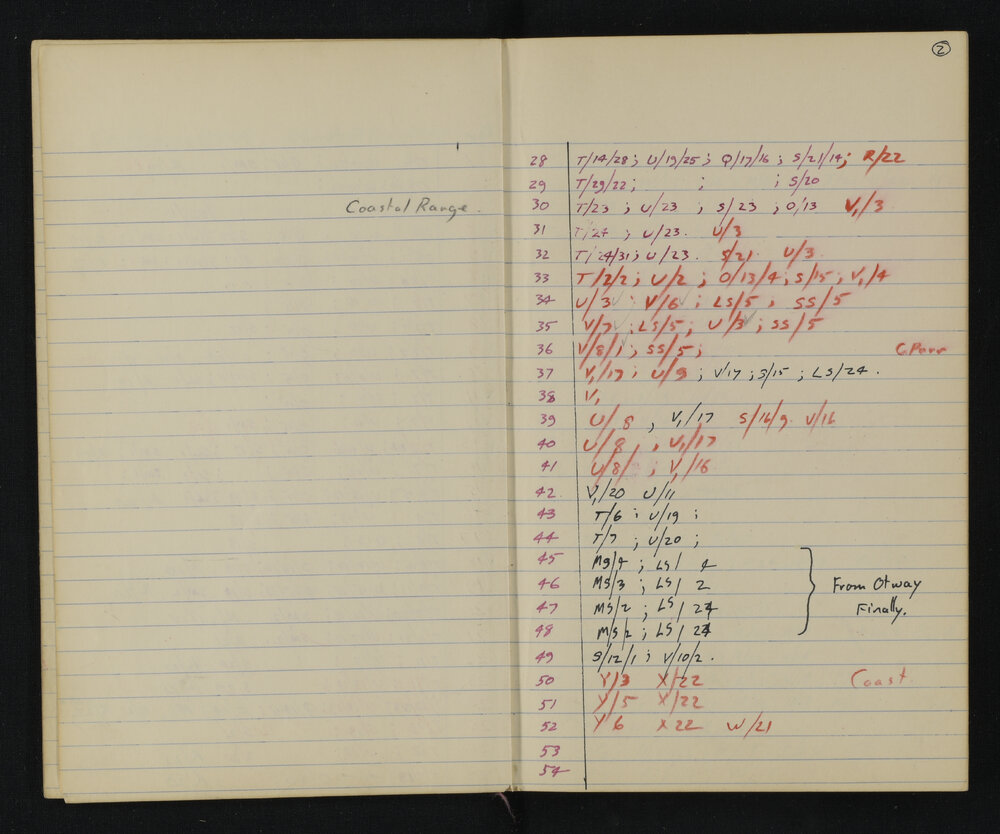 2
28 T/14/28; U/19/25; Q/17/16; S/21/14; R/22
29 T/29/22; ; ; S/20
Coastal Range.
30 T/23 ; U/23 ; S/23 ; O/13 V,/3
31 T/24 ; U/23. U/3
32 T/24/31; U/23. S/21. U/3.
33 T/2/2; U/2; O/13/4; S/15; V,/4
34 U/3 V/6 ; LS/5 ; SS/5
35 V/7 ; LS/5; U/3 ; SS/5
36 V/8/1; SS/5;
37 V,/17; U/9; V17; S/15 ; LS/24.
38 V,
39 U/8, V,/17 S/16/9. V/16
40 U/8, V,/17
41 U/8/ ; V,/16
42 V,/20 U/11
43 T/6 ; U/19 ;
44 T/7 ; U/20 ;
45 MS/4 ; LS/ 4
46 MS/3 ; LS/ 2
From Otway
47 MS/2 ; LS/24
Finally.
48 MS/2 ; LS/24
49 S/12/1; V/10/2.
50 Y/3 X/22 Coast.
51 Y/5 X/22
52 Y 6 X 22 W/21
53
54